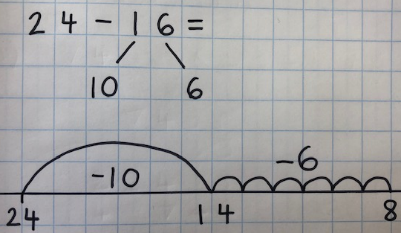 24 - 16 =
10 6
-10 -6
24 14 8